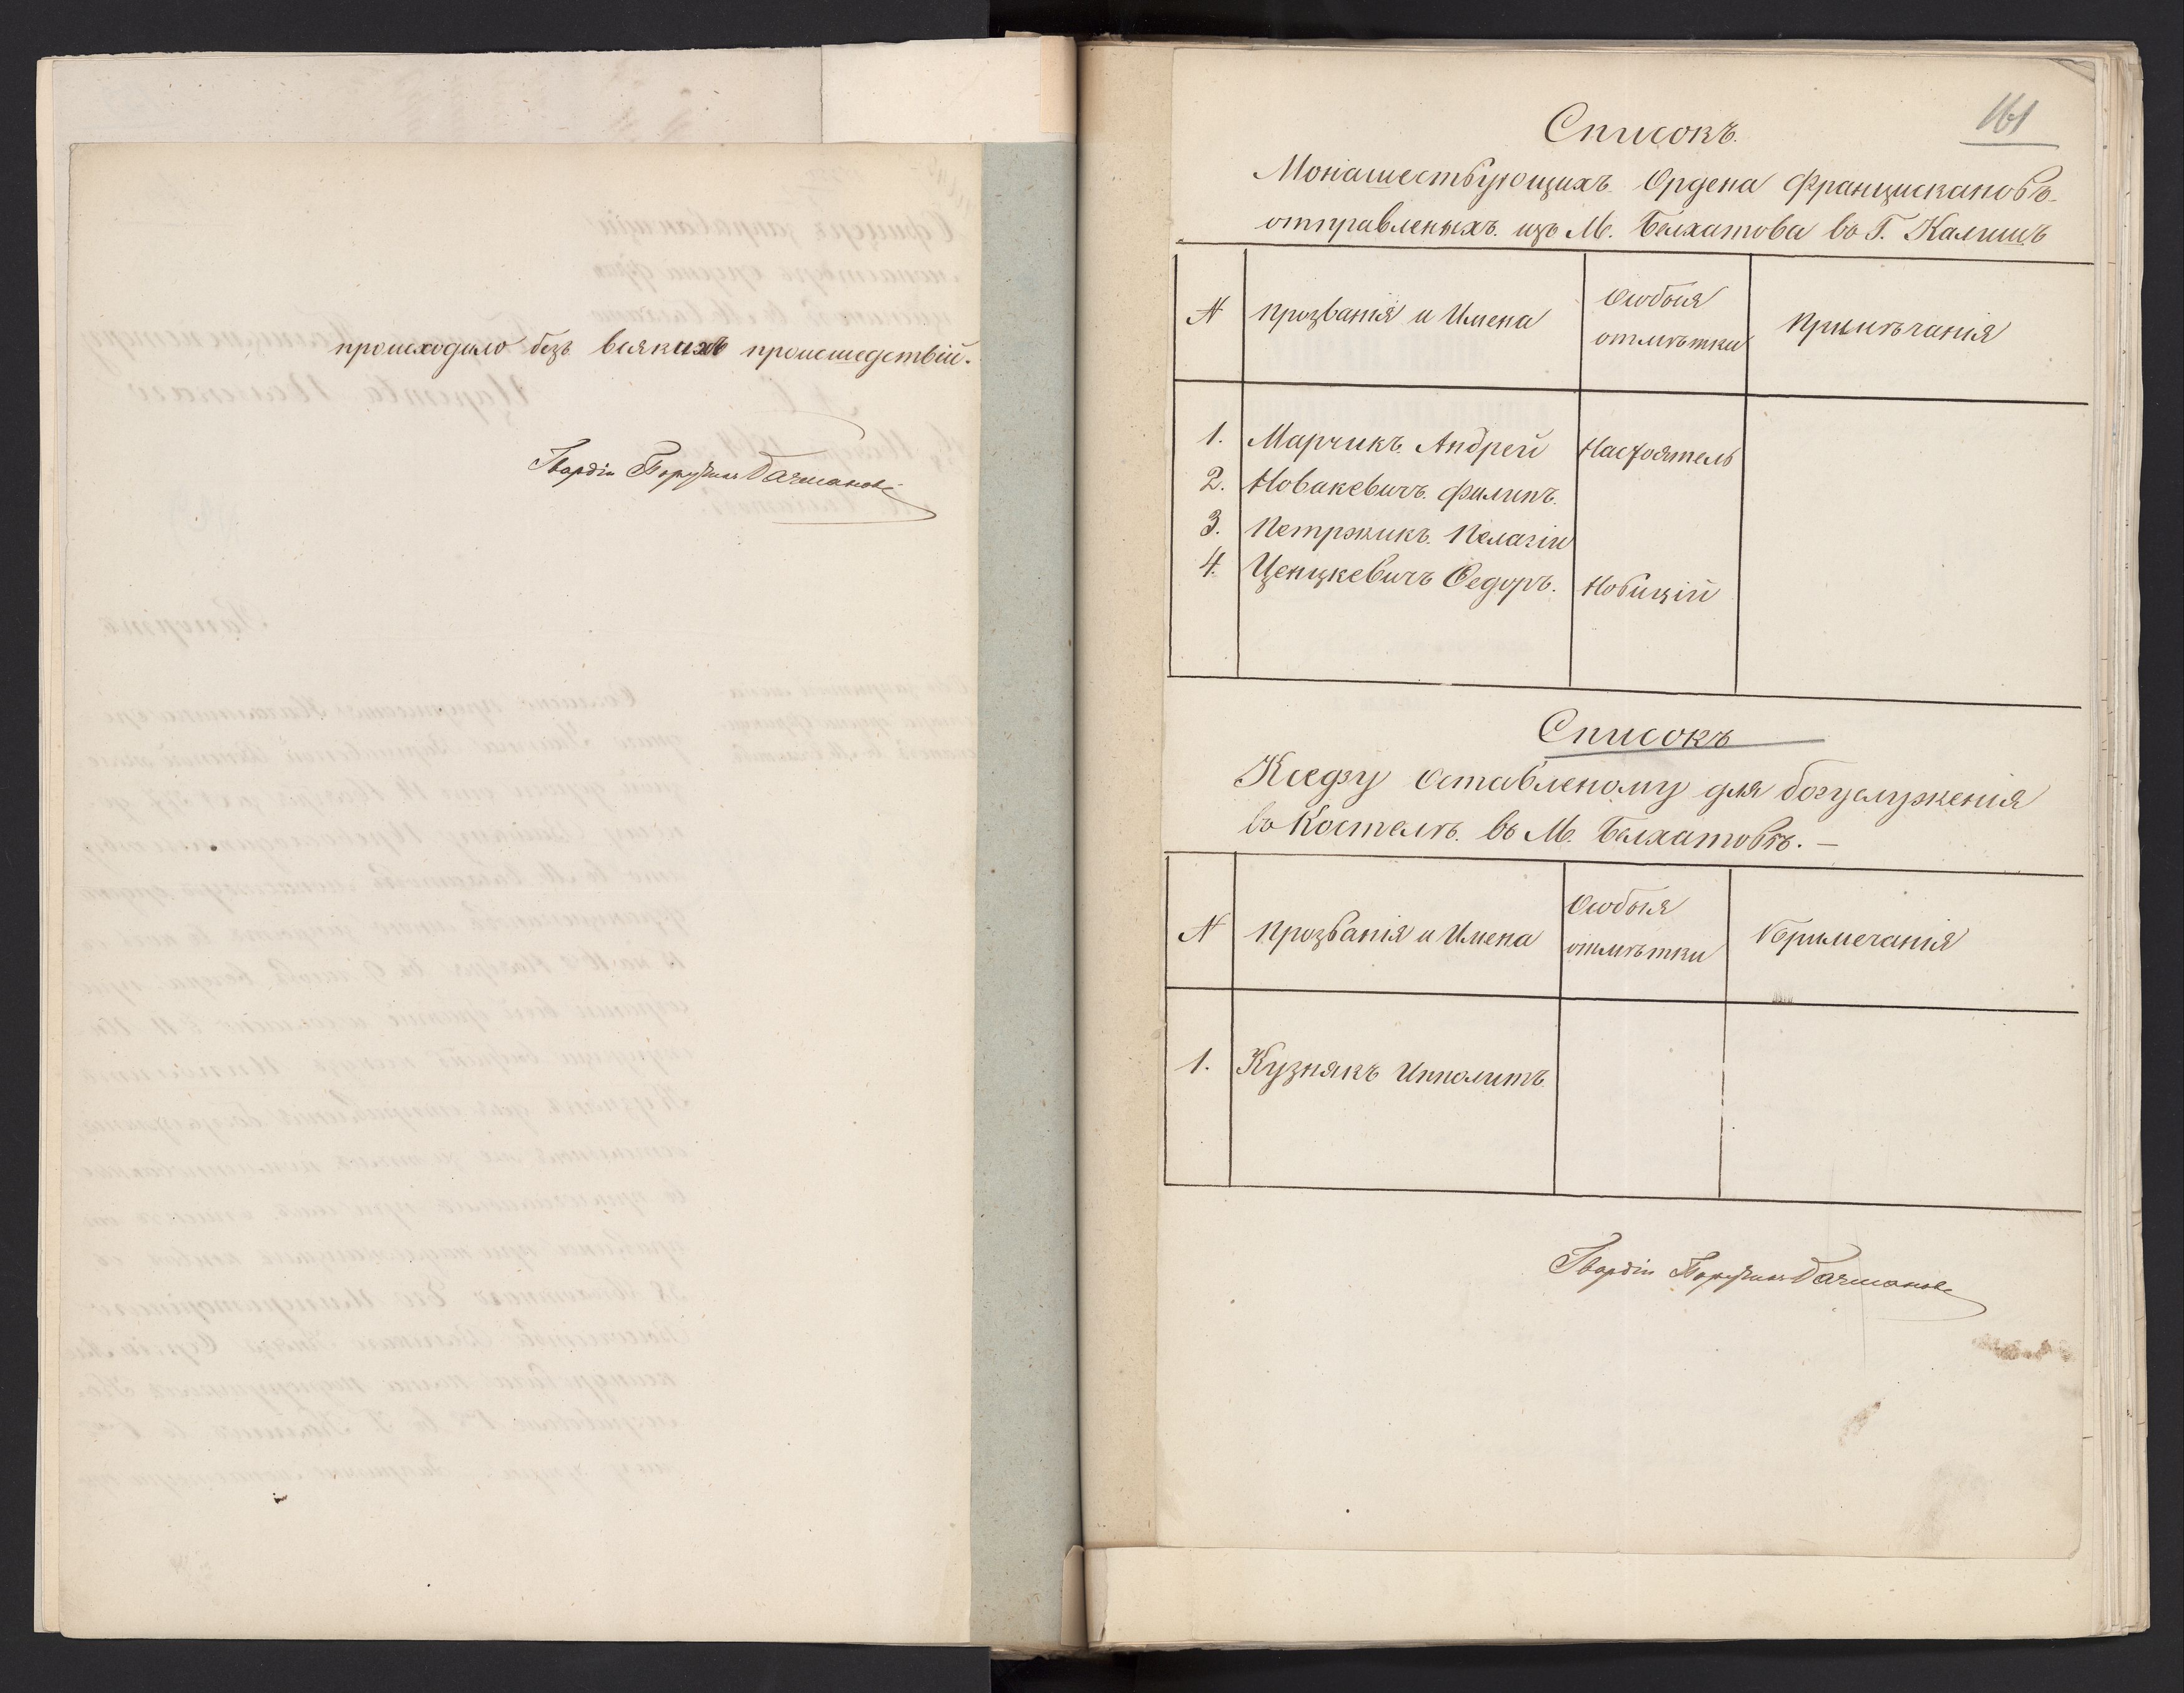 происходило безъ всякихъ происшедствій.
Гвардіи Поручикъ Бачмановъ
161
Списокъ.
Монашествующихъ Ордена Францискановъ
отправленыхъ изъ М. Белхатова въ Г. Калишъ
N Прозванія и Имена Особыя отмѣтки Примѣчанія
1. Марчикъ Андрей Настоятель
2. Новакевичъ Филипъ.
3. Петржикъ Пелагій
4. Ценцкевичъ Ѳедоръ. Новицій
Списокъ
Кседзу Оставленому для богуслуженія
въ Костелѣ въ М. Белхатовѣ. —
N Прозванія и Имена Особыя отмѣтки Примечанія
1. Кузнякъ Ипполитъ
Гвардіи Поручикъ Бачмановъ